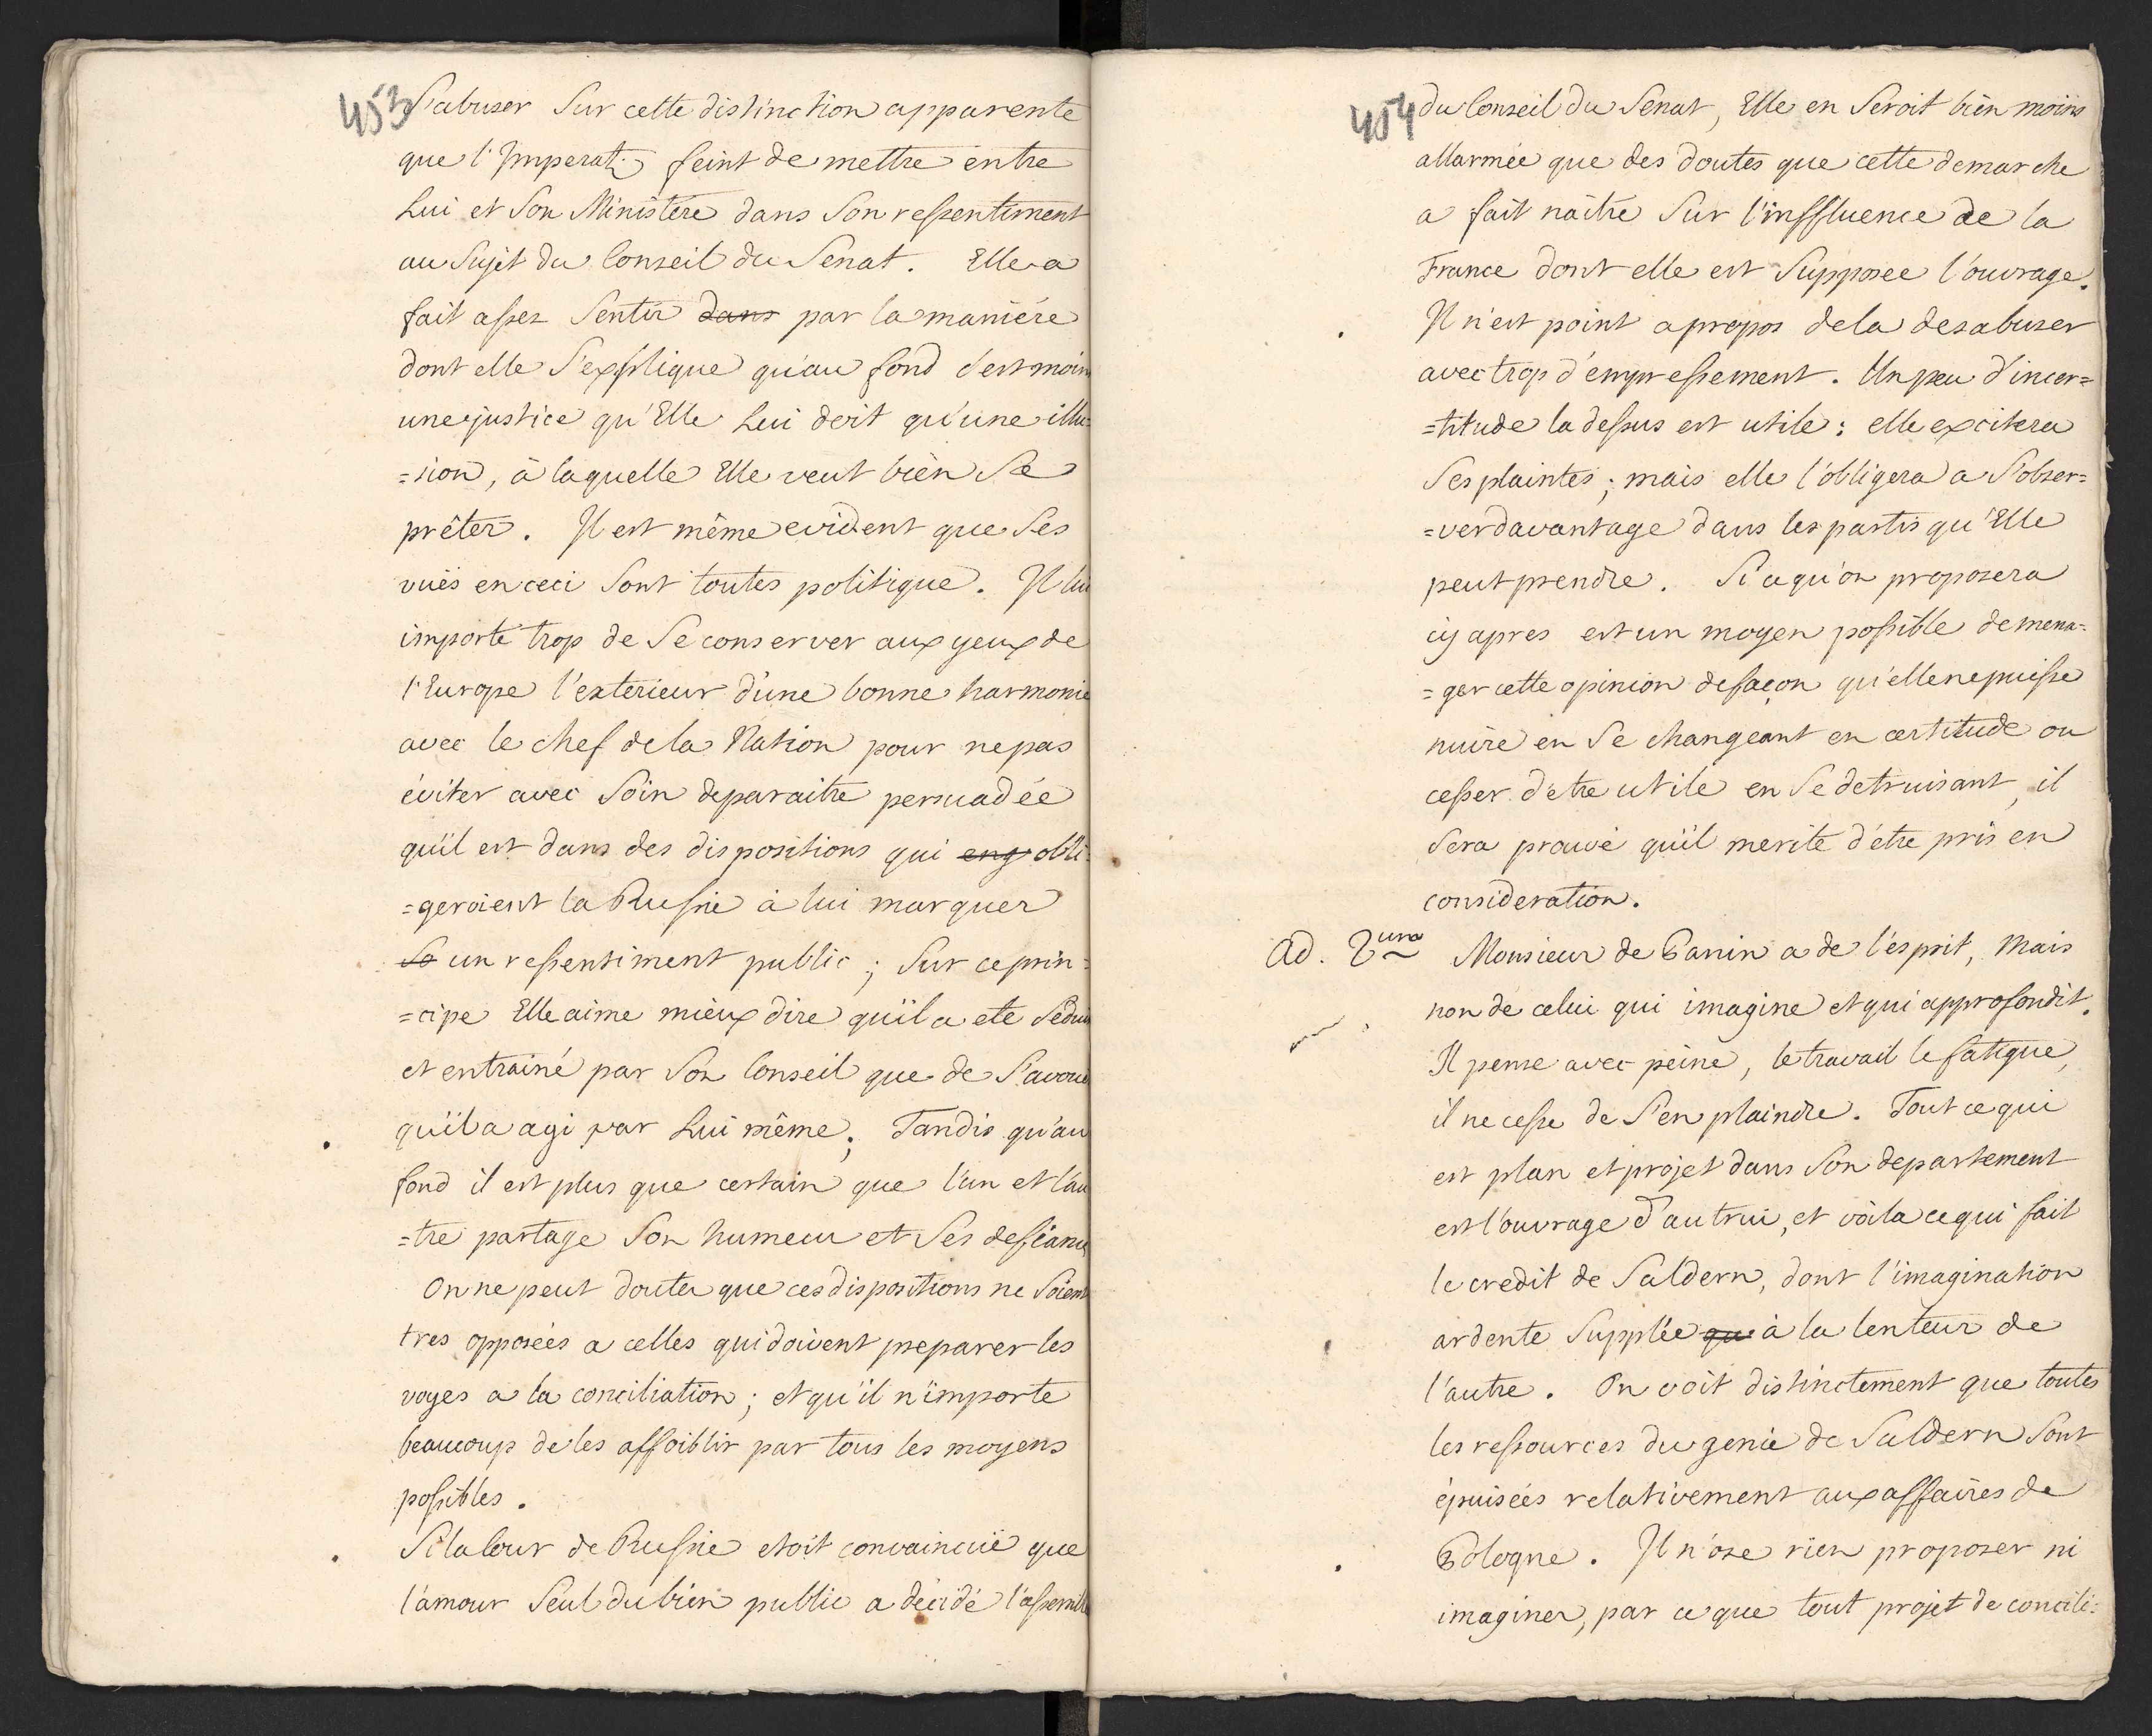 453
S'abuser Sur cette distinction apparente
que l'Imperat: feint de mettre entre
Lui et Son Ministere dans Son ressentiment
au Sujet du Conseil du Senat. Elle a
fait assez Sentir dans par la maniére
dont elle S'explique qu'au fond c'est moin
une justice qu'Elle Lui doit qu'une illu=
=sion, à laquelle Elle veut bien Se
prêter. Il est même evident que Ses
vuës en ceci Sont toutes politique. Il lui
importe trop de Se conserver aux yeux de
l'Europe l'exterieur d'une bonne harmonie
avec le chef de la Nation pour ne pas
éviter avec Soin de paraitre persuadée
qu'il est dans des dispositions qui eng obli=
=geroient la Russie à lui marquer
So un ressentiment public; Sur ce prin=
=cipe Elle aime mieux dire qu'il a ete Seduit
et entrainé par Son Conseil que de S'avouer
qu'il a agi par Lui même. Tandis qu'au
fond il est plus que certain que l'un et l'au
=tre partage Son humeur et Ses defiance
On ne peut douter que ces dispositions ne Soient
tres opposées a celles qui doivent preparer les
voyes a la conciliation; et qu'il n'importe
beaucoup de les affoiblir par tous les moyens
possibles.
Si la Cour de Russie etoit convaincuë que
l'amour Seul du bien public a décidé l'assemblé
454
du Conseil du Senat, Elle en Seroit bien moins
allarmée que des doutes que cette demarche
a fait naître Sur l'inffluence de la
France dont elle est Supposée l'ouvrage.
Il n'est point apropos de la desabuser
avec trop d'empressement. Un peu d'incer=
=titude la dessus est utile: elle excitera
Ses plaintes; mais elle l'obligera a S'obser=
=ver davantage dans les partis qu'Elle
peut prendre. Si ce qu'on proposera
cy apres est un moyen possible de mena=
=ger cette opinion de façon qu'elle ne puisse
nuire en Se changeant en certitude ou
cesser d'etre utile en Se detruisant, il
Sera prouvé qu'il merite d'étre pris en
consideration.
ad. 2um Monsieur de Panin a de l'esprit, Mais
non de celui qui imagine et qui approfondit.
Il pense avec peine, le travail le fatigue,
il ne cesse de S'en plaindre. Tout ce qui
est plan et projet dans Son departement
est l'ouvrage d'autrui, et voila ce qui fait
le credit de Saldern, dont l'imagination
ardente Supplée que à la lenteur de
l'autre. On voit distinctement que toutes
les ressources du genie de Saldern Sont
épuisées relativement aux affaires de
Pologne. Il n'ose rien proposer ni
imaginer, par ce que tout projet de concili=